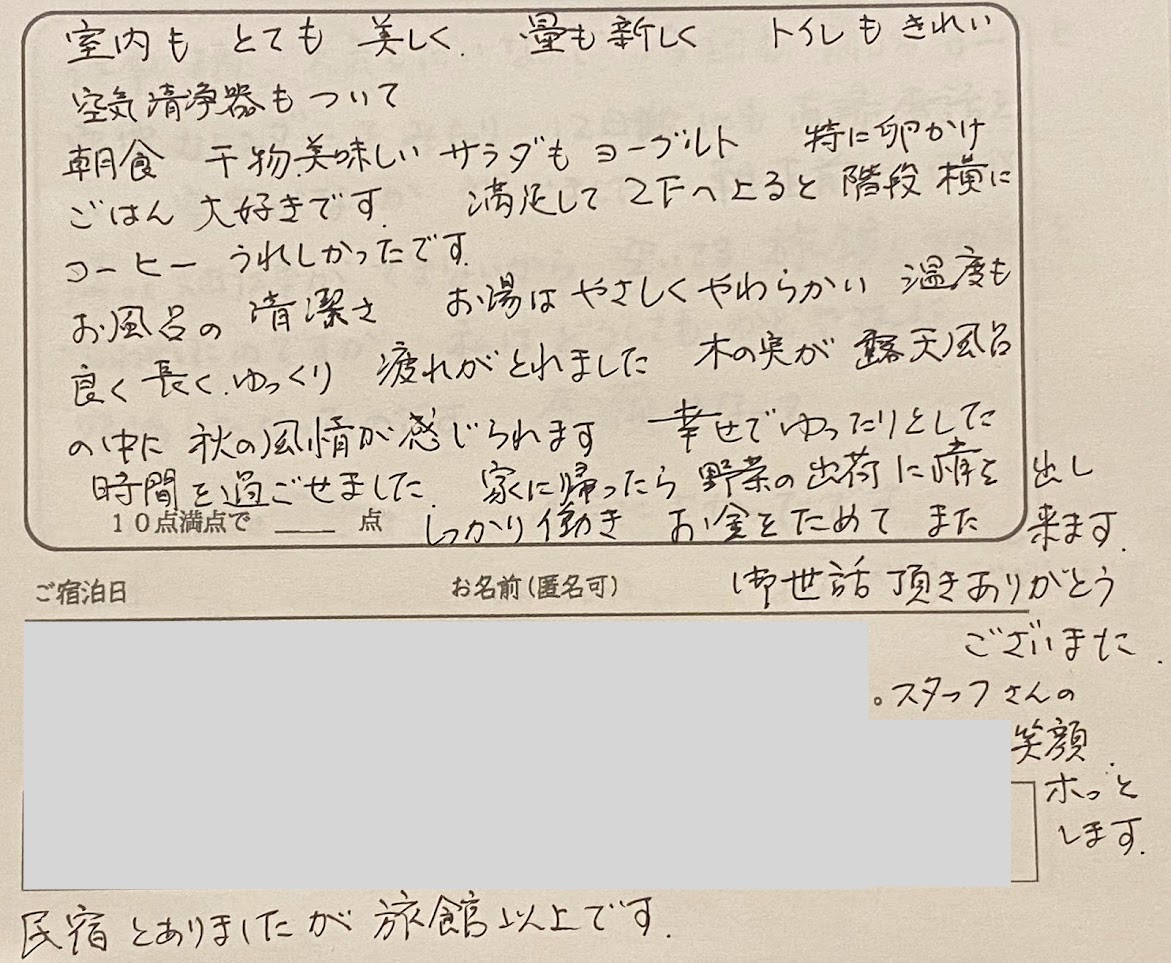 室内も とても 美しく. 畳も新しく トイレもきれい
空気清浄器もついて
朝食 干物美味しい サラダも ヨーグルト 特に卵かけ
ごはん 大好きです. 満足して 2Fへ上ると 階段 横に
コーヒー うれしかったです.
お風呂の 清潔さ お湯は やさしくやわらかい 温度も
良く 長く.ゆっくり 疲れがとれました 木の実が 露天風呂
の中に 秋の風情が感じられます 幸せでゆったりとした
時間を過ごせました. 家に帰ったら 野菜の出荷に精を 出し
しっかり働き お金をためて また 来ます.
10点満点で ____ 点
ご宿泊日 お名前(匿名可)
御世話頂きありがとう
ございまた.
。スタッフさんの
笑顔.
ホッと
します.
民宿とありましたが 旅館以上です.